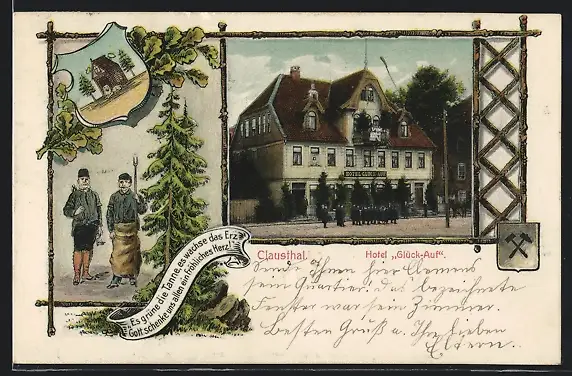 Es grüne die Tanne, es wachse das Erz
Gott schenke uns allen ein fröhliches Herz!
HOTEL GLÜCK AUF
Clausthal.
Hotel „Glück-Auf“.
Sende Ihnen hier Clemens
sein Quartier, das bezeichnete
Fenster war sein Zimmer.
Besten Gruß u. Ihre lieben
Eltern.